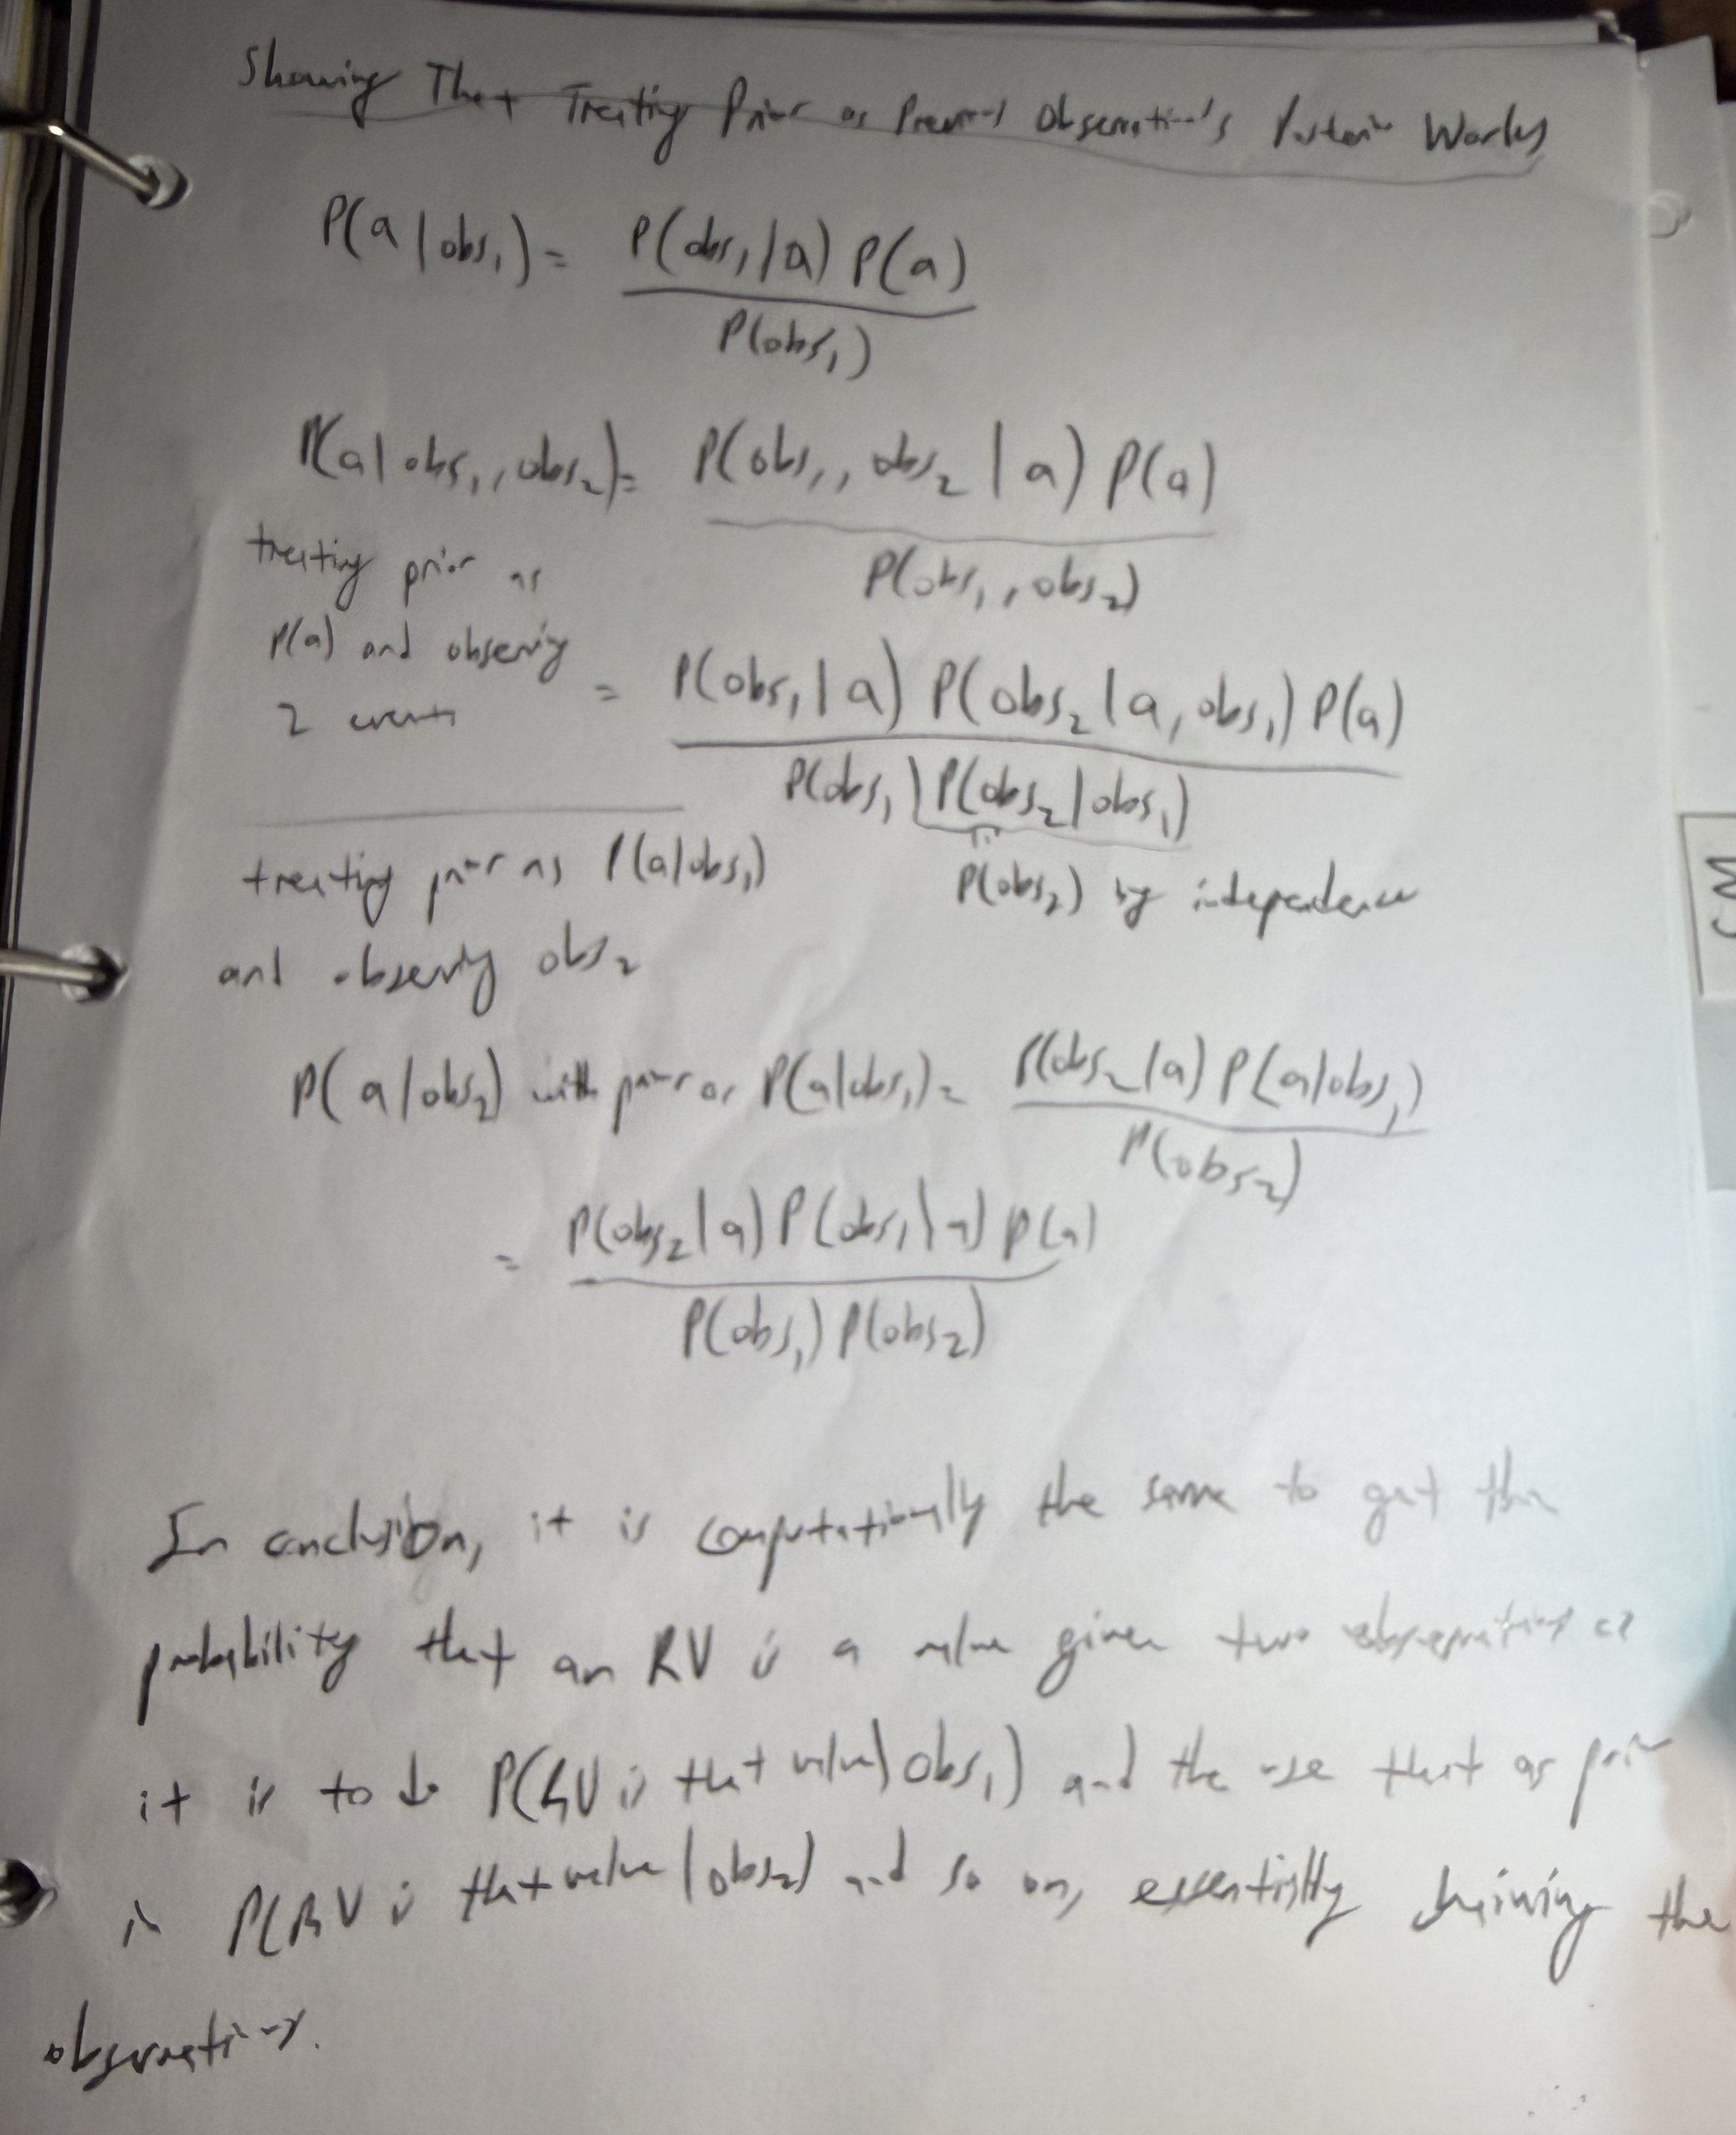 Showing That Treating Prior as Previous Observation's Posterior Works
P(a | obs₁) = P(obs₁ | a) P(a)
P(obs₁)
P(a | obs₁, obs₂) = P(obs₁, obs₂ | a) P(a)
P(obs₁, obs₂)
treating prior as
P(a) and observing
2 events
= P(obs₁ | a) P(obs₂ | a, obs₁) P(a)
P(obs₁) P(obs₂ | obs₁)
P(obs₂) by independence
treating prior as P(a|obs₁)
and observing obs₂
P(a | obs₂) with prior as P(a|obs₁) = P(obs₂ | a) P(a|obs₁)
P(obs₂)
= P(obs₂ | a) P(obs₁ | a) P(a)
P(obs₁) P(obs₂)
In conclusion, it is computationally the same to get the
probability that an RV is a value given two observations as
it is to do P(RV is that value | obs₁) and the use that as prior
in P(RV is that value | obs₂) and so on, essentially chaining the
observations.
SM